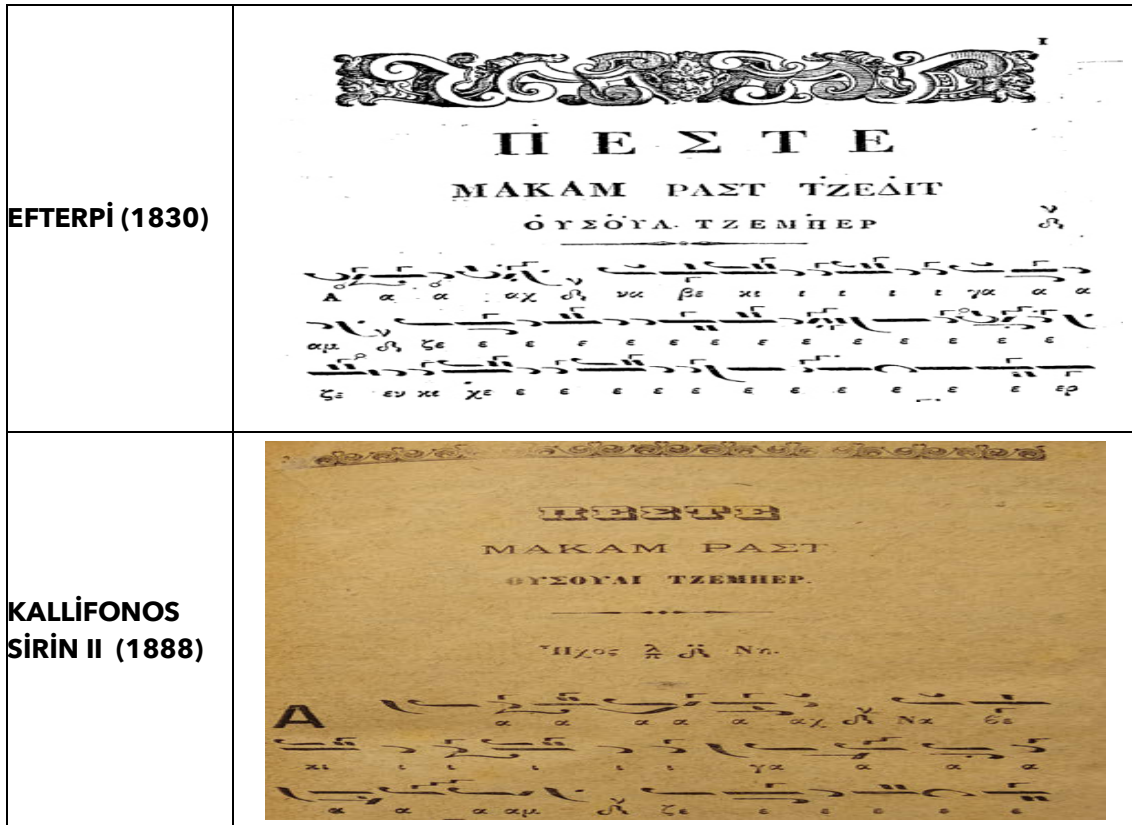 EFTERPİ (1830)
I
ΠΕΣΤΕ
ΜΑΚΑΜ ΡΑΣΤ ΤΖΕΔΙΤ
ΟΥΣΟΥΛ. ΤΖΕΜΠΕΡ
Α α α αχ να βε κι ι ι ι ι γα α α
αμ ζε ε ε ε ε ε ε ε ε ε ε ε ε ε
ζε εν κε χε ε ε ε ε ε ε ε ε ε ε ερ
KALLİFONOS
SİRİN II (1888)
ΠΕΣΤΕ
ΜΑΚΑΜ ΡΑΣΤ.
ΟΥΣΟΥΛΙ ΤΖΕΜΠΕΡ.
Ἦχος Νη.
Α α α α α α αχ Να βε
κι ι ι ι ι ι γα α α α
α α α αμ ζε ε ε ε ε ε